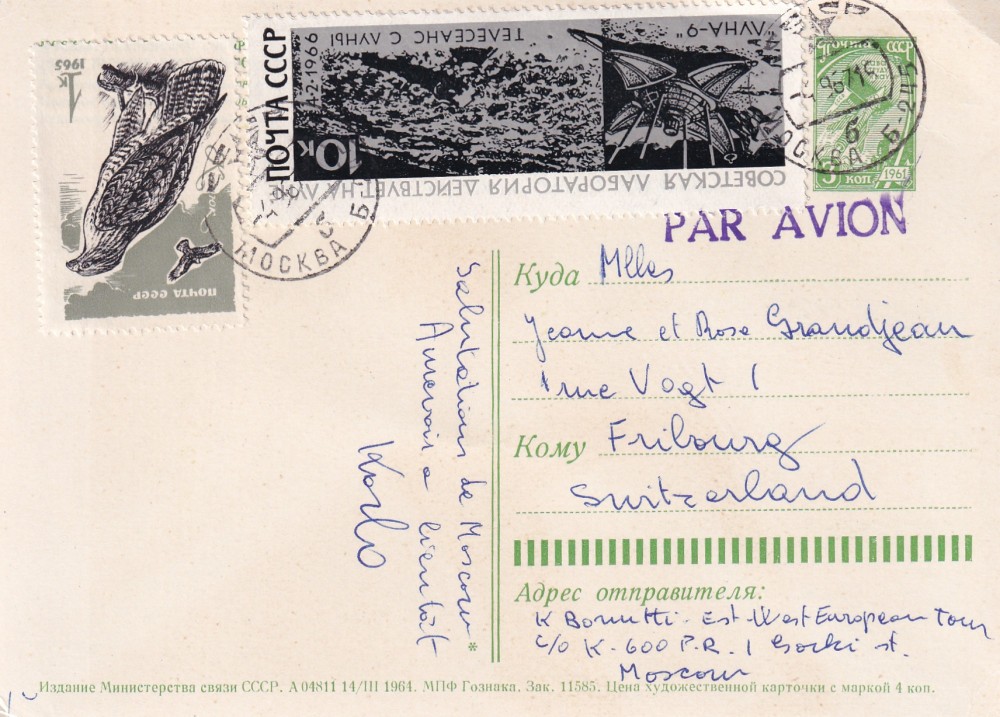 1965
1к
ПОЧТА СССР
ПОЧТА СССР
4.2.1966
ТЕЛЕСЕАНС С ЛУНЫ
"ЛУНА-9"
10к
СОВЕТСКАЯ ЛАБОРАТОРИЯ ДЕЙСТВУЕТ НА ЛУНЕ
МОСКВА
Б
МОСКВА Б-215
6
ПОЧТА СССР
1961
3 КОП.
PAR AVION
Куда Mlles
Jeanne et Rose Grandjean
rue Vogt 1
Кому Fribourg
Switzerland
Salutations de Moscou
Aurevoir a bientôt
Karlo
Адрес отправителя:
K Bornutti. Est-West European Tour
c/o K-600 P.R. 1 Gorki st.
Moscou
*
Издание Министерства связи СССР. А 04811 14/III 1964. МПФ Гознака. Зак. 11585. Цена художественной карточки с маркой 4 коп.